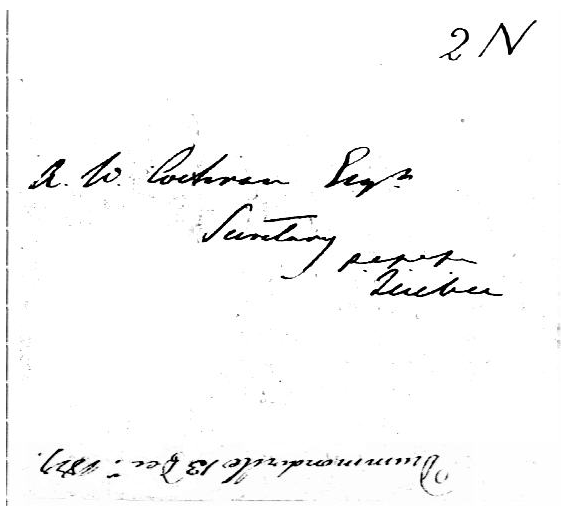 2 N
A. W. Cochran Esqr
Secretary
Quebec
Drummondville 13 Decr.